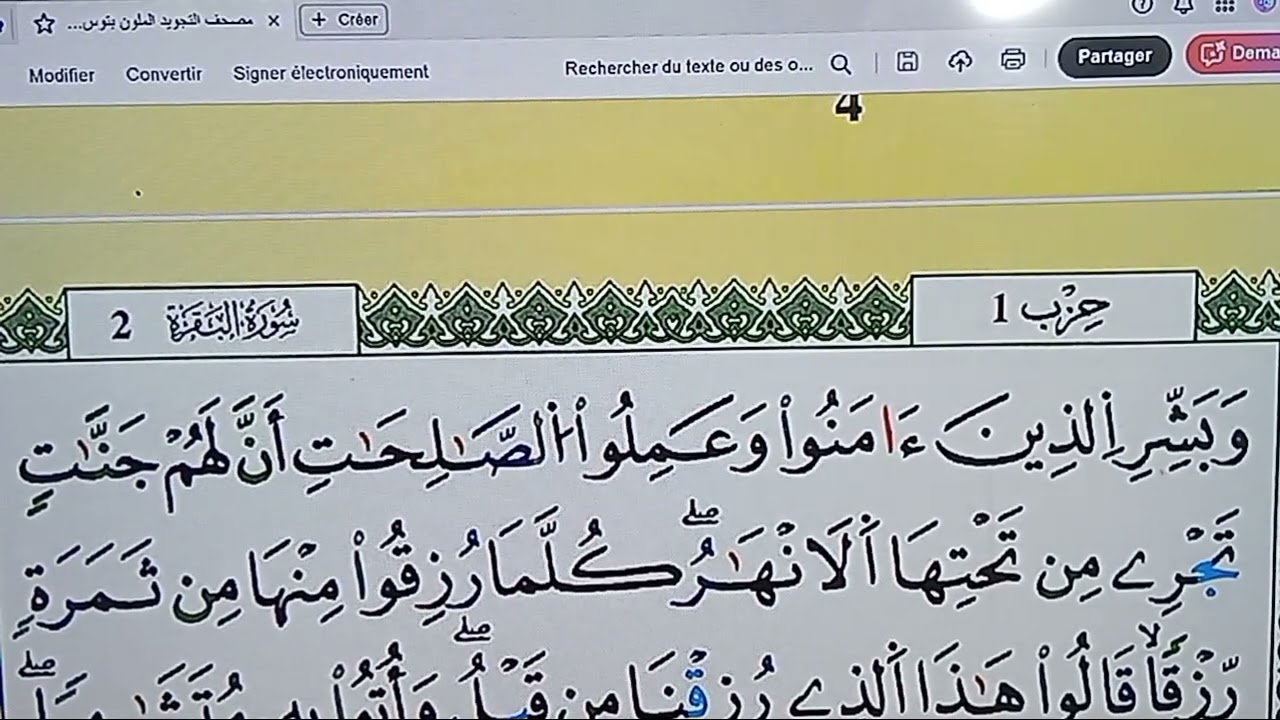 مصحف التجويد الملون بتوس...
+ Créer
Modifier Convertir Signer électroniquement Rechercher du texte ou des o... Partager Dema
4
حِزْب 1
سُورَةُ البَقَرَة 2
وَبَشِّرِ اِ۬لذِينَ ءَا مَنُواْ وَعَمِلُواْ اُ۬لصَّٰلِحَٰتِ أَنَّ لَهُمْ جَنَّٰتٖ
تَجْرِے مِن تَحْتِهَا اَ۬لَانْهَٰرُۖ كُلَّمَا رُزِقُواْ مِنْهَا مِن ثَمَرَةٖ
رِّزْقاٗ قَالُواْ هَٰذَا اَ۬لذِے رُزِقْنَا مِن قَبْلُۖ وَأُتُواْ بِهِۦ مُتَشَٰبِهاٗۖ